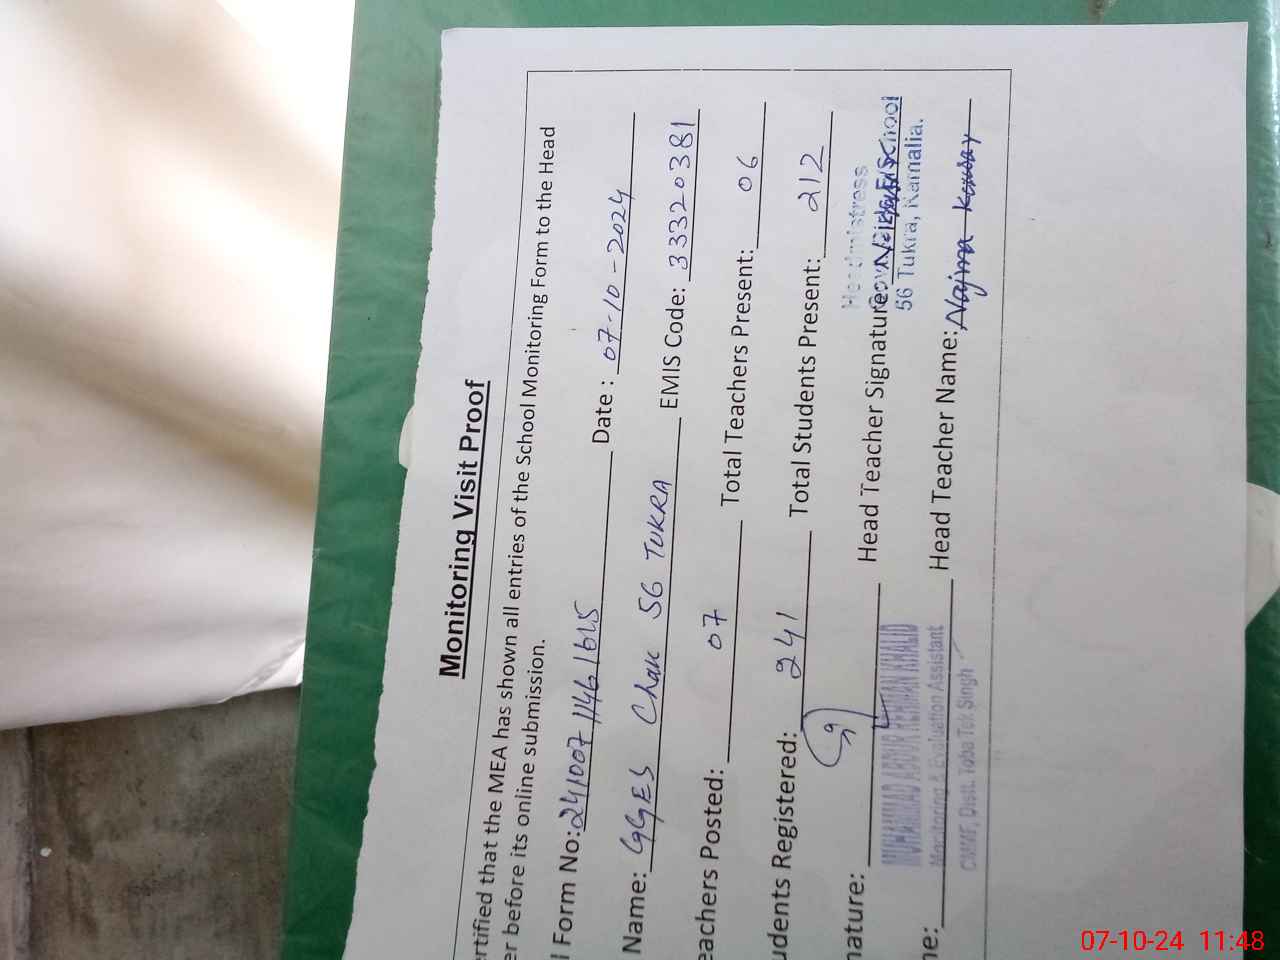 Monitoring Visit Proof
ertified that the MEA has shown all entries of the School Monitoring Form to the Head
er before its online submission.
l Form No: 2410071146 1615 Date : 07-10-2024
Name: GGES Chak 56 TUKRA EMIS Code: 33320381
eachers Posted: 07 Total Teachers Present: 06
udents Registered: 241 Total Students Present: 212
Headmistress
nature: Head Teacher Signature: School
56 Tukra, Kamalia.
MUHAMMAD ABDUR REHMAN KHALID
Monitoring & Evaluation Assistant
me: Head Teacher Name: Najma Kousar
CMMF, Distt. Toba Tek Singh
07-10-24 11:48